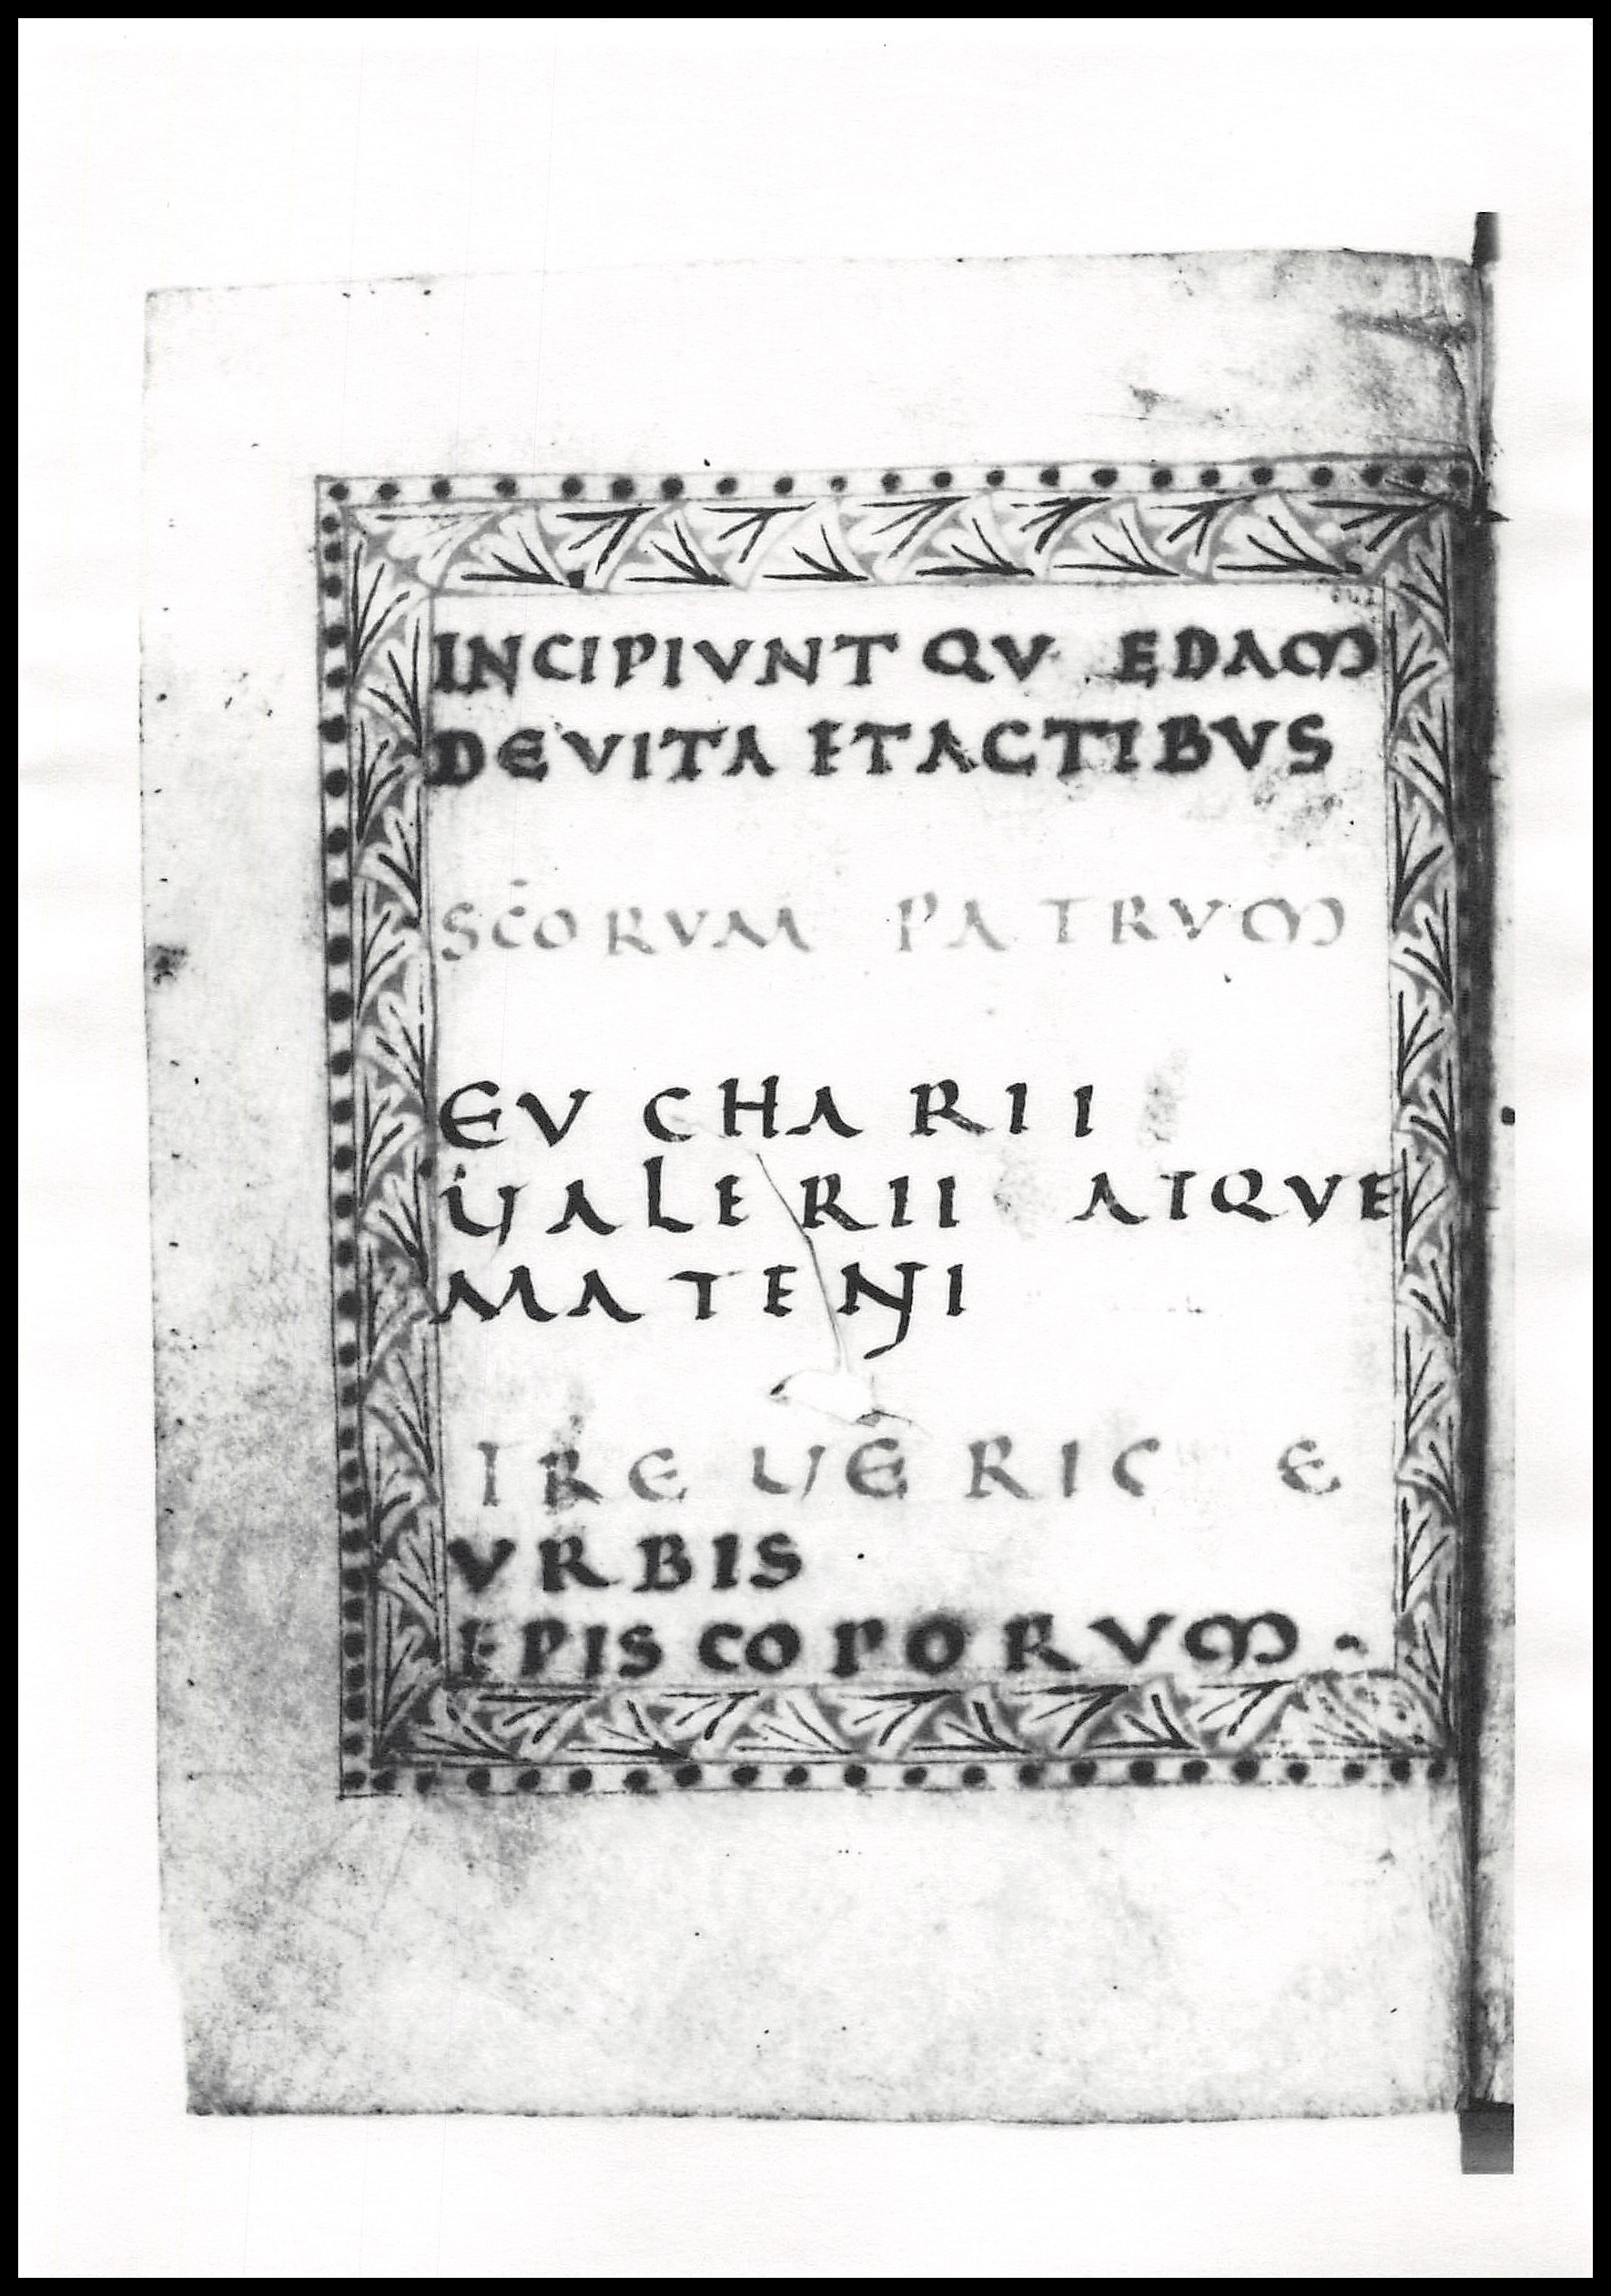 INCIPIVNT QV EDAM
DE VITA ET ACTIBUS
SC̄ORVM PATRVM
EV CHARII
VALERII ATQVE
MATENI
TREVERICE
VRBIS
EPISCOPORVM.